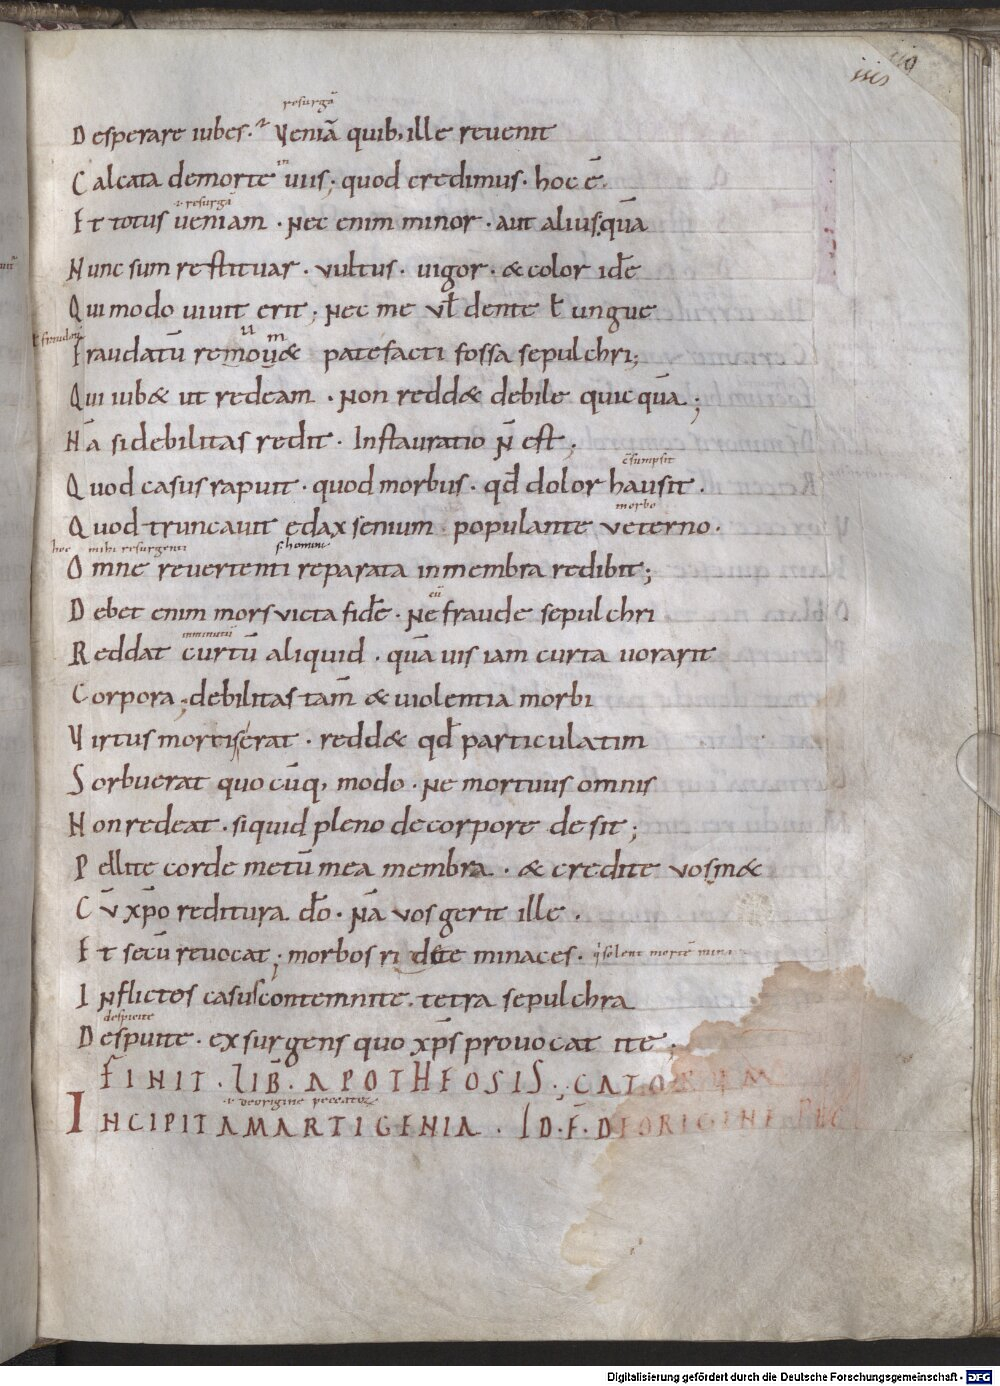 resurgā
Desperare iubes. Veniā quib; ille reuenit
Calcata demorte uiis; quod credimus. hoc ē.
ł resurgā
Et totus ueniam. Nec enim minor. aut alius.quā
Nunc sum restituar. vultus. uigor. & color idē
Qui modo uiuit erit; Nec me vł dente ł ungue
Fraudatū remouu& patefacti fossa sepulchri;
Qui iub& ut redeam. Non redd& debile quicquā;
Nā si debilitas redit. Instauratio ñ est;
c̄sumpsit
Quod casus rapuit. quod morbus. qđ dolor hausit.
morbo
Quod truncauit edax senium populante veterno.
hoc mihi resurgenti
Omne reuertenti reparata in membra redibit;
eū
Debet enim mors victa fidē. Ne fraude sepulchri
imminutū
Reddat curtū aliquid. quā uis iam curta uorarit
Corpora; debilitas tam̄ & uiolentia morbi
Virtus mortis erat. redd& qđ particulatim
Sorbuerat quo cūq; modo. Ne mortuus omnis
Non redeat. siquid pleno de corpore desit;
Pellite corde metū mea membra. & credite vosm&
Cū xp̄o reditura dō. Nā vos gerit ille.
Et secū reuocat; morbos ridete minaces. qͥ solent mortē
Inflictos casus contemnite. tetra sepulchra
despicite
Despuite. exsurgens quo xp̄s prouocat ite;
FINIT. LIB̄. APOTHEOSIS;
ł deorigine peccatoꝝ
INCIPIT AMARTIGENIA. ID. Ē. DE ORIGINE PEC
Digitalisierung gefördert durch die Deutsche Forschungsgemeinschaft - DFG